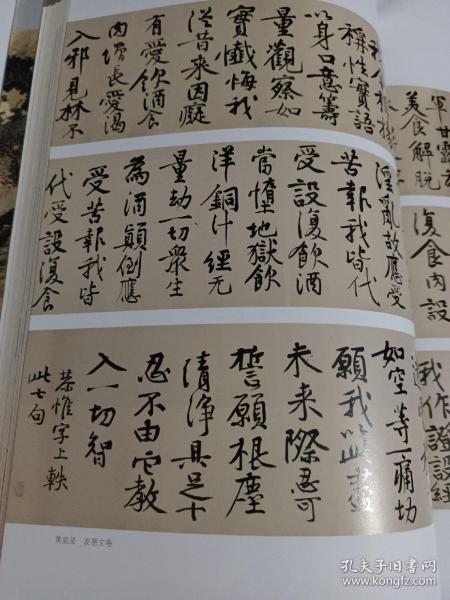 軍甘露為
美食解脫
復食肉設
我作證設經
稱性實語
以身口意籌
量觀察如
實懺悔我
從昔來因癡
有愛飲酒食
肉增長愛渴
入邪見林不
淫亂故應受
苦報我皆代
受設復飲酒
當墮地獄飲
洋銅汁經无
量劫一切眾生
為酒顛倒應
受苦報我皆
代受設復食
如空等一痛切
願我以此盡
未來際忍可
誓願根塵
清淨具足十
忍不由它教
入一切智
恭惟字上軼
此七句
黄庭坚 发愿文卷
孔夫子旧书网